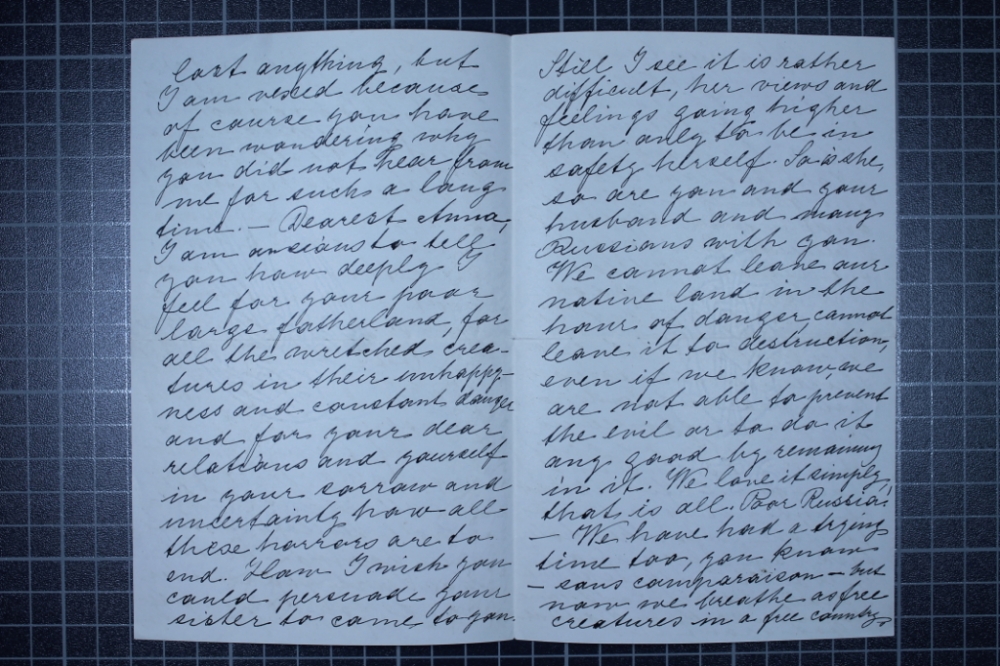 lost anything, but
I am vexed because
of course you have
been wondering why
you did not hear from
me for such a long
time. — Dearest Anna,
I am anxious to tell
you how deeply I
feel for your poor
large fatherland, for
all the wretched crea-
tures in their unhappy-
ness and constant danger
and for your dear
relations and yourself
in your sorrow and
uncertainty how all
these horrors are to
end. How I wish you
could persuade your
sister to come to you.
Still I see it is rather
difficult, her views and
feelings going higher
than only to be in
safety herself. So is she,
so are you and your
husband and many
Russians with you.
We cannot leave our
native land in the
hour of danger, cannot
leave it to destruction,
even if we know, we
are not able to prevent
the evil or to do it
any good by remaining
in it. We love it simply,
that is all. Poor Russia!
— We have had a trying
time too, you know
— sans comparaison — but
now we breathe as free
creatures in a free country